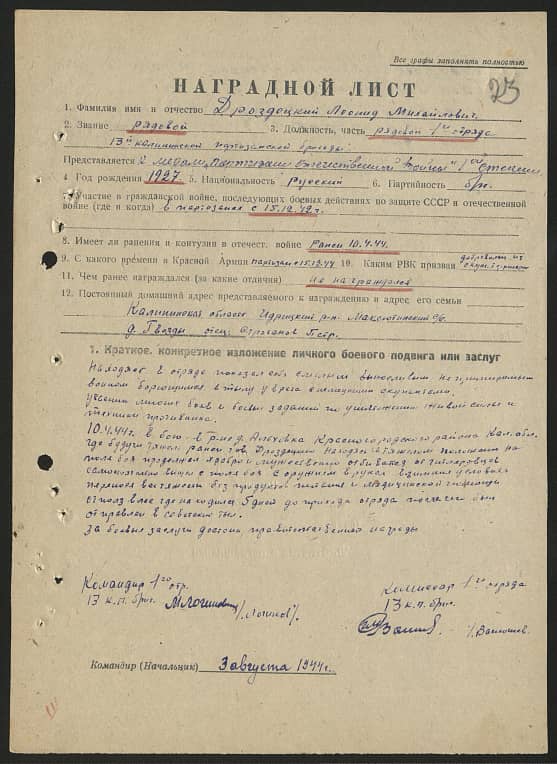 Все графы заполнять полностью
23
НАГРАДНОЙ ЛИСТ
1. Фамилия имя и отчество Дроздецкий Леонид Михайлович
2. Звание рядовой 3. Должность, часть рядовой 1го отряда
13й калининской партизанской бригады.
Представляется к медали "Партизану отечественной войны" 1ой степени
4. Год рождения 1927 5. Национальность Русский 6. Партийность б/п.
7. Участие в гражданской войне, последующих боевых действиях по защите СССР и отечественной
войне (где и когда) в партизанах с 15.12.42г.
8. Имеет ли ранения и контузии в отечест. войне Ранен 10.4.44.
9. С какого времени в Красной Армии партизан с 10. Каким РВК призван
11. Чем ранее награждался (за какие отличия) не награждался
12. Постоянный домашний адрес представляемого к награждению и адрес его семьи
Калининская область Идрицкий р-н. Максютинский с/с.
д. Гвозды отец:
1. Краткое, конкретное изложение личного боевого подвига или заслуг
Находясь в отряде показал себя смелым выносливым непримиримым
воином борющимся в тылу у врага с немецкими оккупантами.
многих боев и боевых заданий по уничтожению живой силы и
техники противника.
10.4.44г. в бою в р-не д. Красногородского района Кал. обл.
где будучи тяжело ранен тов. Дроздецкий находясь в тяжелом положении на
поле боя продолжал храбро и мужественно отбиваясь от гитлеровцев
самостоятельно вышел с поля боя с оружием в руках. условиях
без продуктов питания и медицинской помощи
где находился 5 дней до прихода отряда после чего был
отправлен в советский тыл.
За боевые заслуги достоин правительственной награды
Командир 1го отр. Комиссар 1го отряда
13 к.п. бриг. /Логинов/. 13 к.п. бриг.
Командир (Начальник) 3 августа 1944 г.